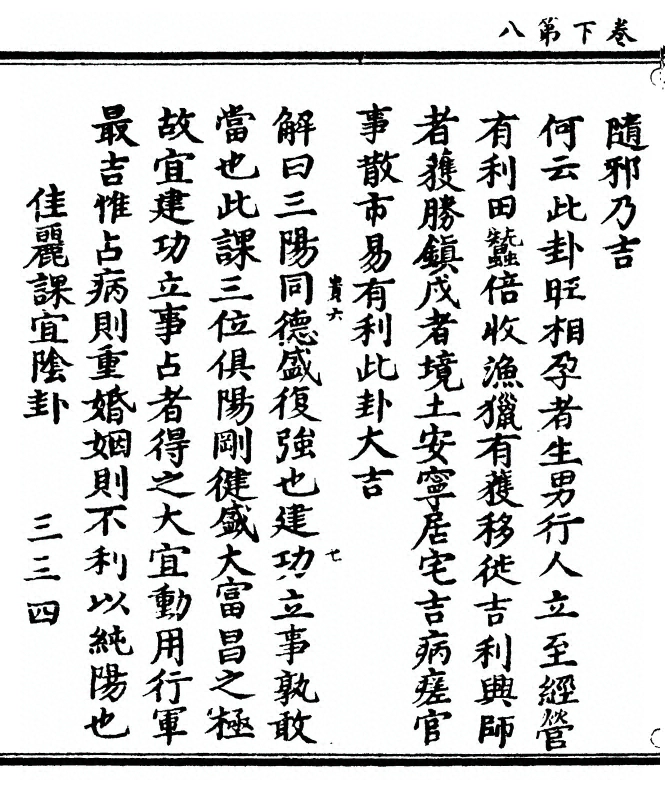 卷下第八
隨邪乃吉
何云此卦旺相孕者生男行人立至經營
有利田蠶倍收漁獵有獲移徙吉利興師
者獲勝鎮戍者境土安寧居宅吉病瘥官
事散市易有利此卦大吉
貴六
七
解曰三陽同德盛復強也建功立事孰敢
當也此課三位俱陽剛健盛大富昌之極
故宜建功立事占者得之大宜動用行軍
最吉惟占病則重婚姻則不利以純陽也
佳麗課宜陰卦 三三四